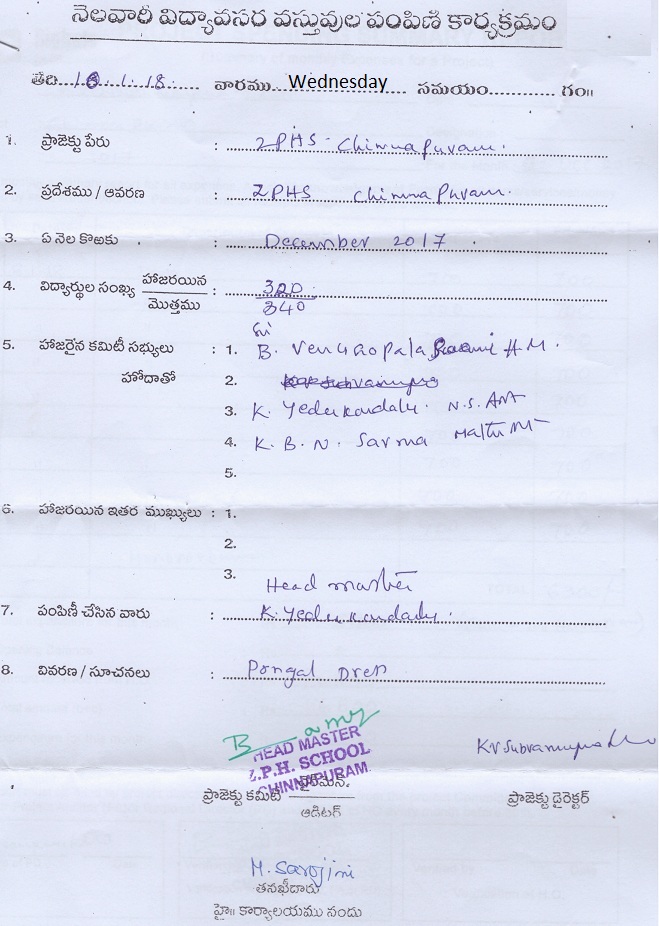 నెలవారీ విద్యావసర వస్తువుల పంపిణీ కార్యక్రమం
తేది....10.1.18........ వారము...Wednesday.... సమయం............. గం॥
1. ప్రాజెక్టు పేరు : ZPHS - Chinnapuram.
2. ప్రదేశము / ఆవరణ : ZPHS Chinnapuram.
3. ఏ నెల కొఱకు : December 2017
4. విద్యార్థుల సంఖ్య హాజరయిన / మొత్తము : 320 / 340
Sri
5. హాజరైన కమిటీ సభ్యులు : 1. B. Venugopala Swami H.M.
హోదాతో 2.
3. K. Yedukondalu. N.S. Asst
4. K. B. N. Sarma Maths
5.
6. హాజరయిన ఇతర ముఖ్యులు : 1.
2.
3.
Head master
7. పంపిణీ చేసిన వారు : K. Yedukondalu.
8. వివరణ / సూచనలు : Pongal Dress
HEAD MASTER
Z.P.H. SCHOOL
CHINNAPURAM
ప్రాజెక్టు కమిటీ ఛైర్మెన్ / ఆడిటర్
ప్రాజెక్టు డైరెక్టర్
M. Sarojini
తనఖీదారు
హై॥ కార్యాలయము నందు